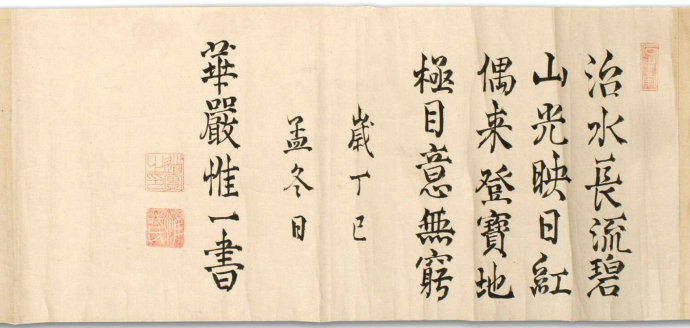 治水長流碧
山光映日紅
偶来登寶地
極目意無窮
歲丁巳
孟冬日
華嚴惟一書